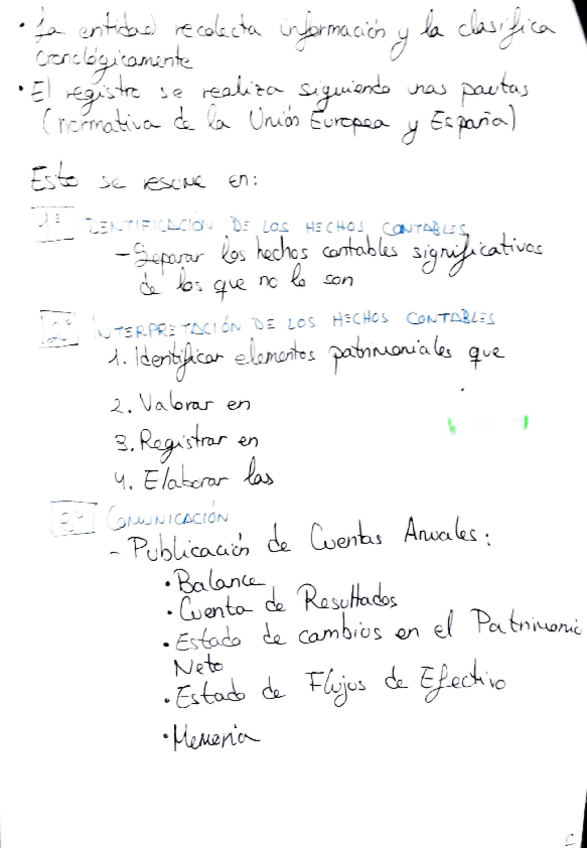 · La entidad recolecta información y la clasifica
cronológicamente
· El registro se realiza siguiendo unas pautas
(normativa de la Unión Europea y España)
Esto se resume en:
1º IDENTIFICACIÓN DE LOS HECHOS CONTABLES
- Separar los hechos contables significativos
de los que no lo son
2º INTERPRETACIÓN DE LOS HECHOS CONTABLES
1. Identificar elementos patrimoniales que
2. Valorar en
3. Registrar en
4. Elaborar las
3º COMUNICACIÓN
- Publicación de Cuentas Anuales:
· Balance
· Cuenta de Resultados
· Estado de cambios en el Patrimonio
Neto
· Estado de Flujos de Efectivo
· Memoria